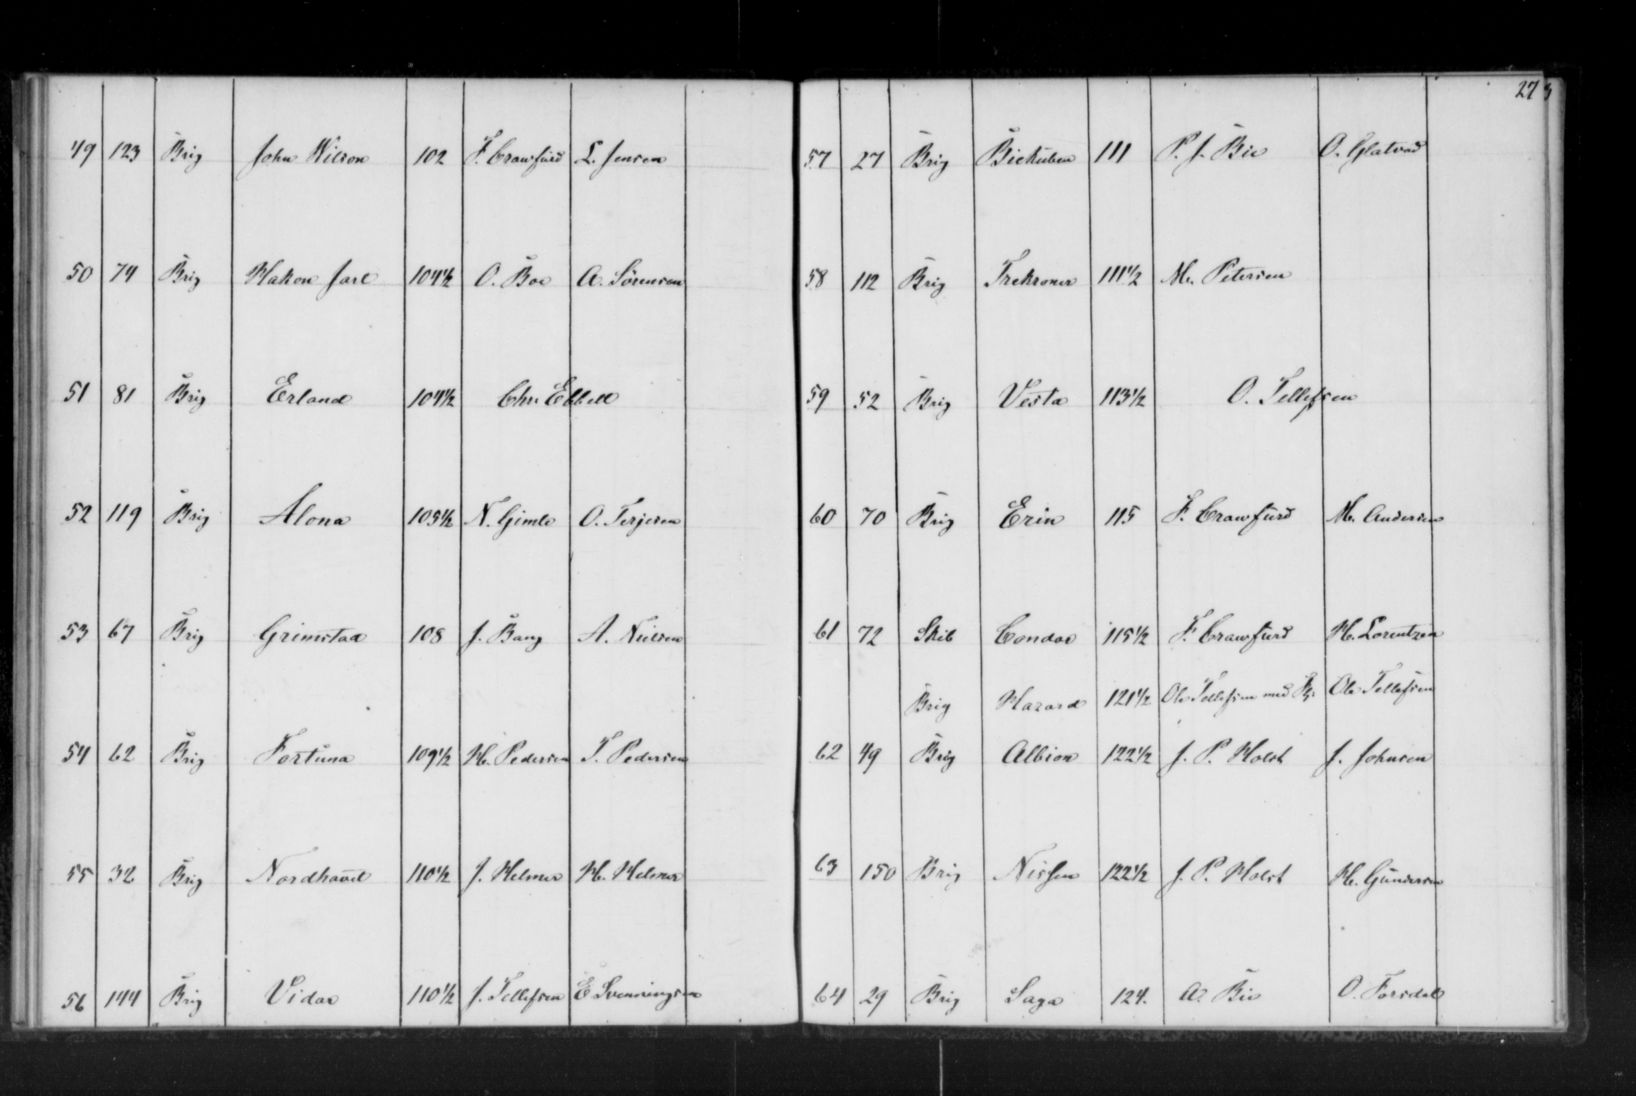 49 123 Brig John Wilson 102 F. Crawfurd L. Jensen
50 74 Brig Hakon Jarl 104½ O. Boe A. Sörensen
51 81 Brig Erland 104½ Chr. Ebbell
52 119 Brig Alona 105½ N. Gimle O. Terjesen
53 67 Brig Grimstad 108 J. Bang A. Nielsen
54 62 Brig Fortuna 109½ H. Pedersen T. Pedersen
55 32 Brig Nordhavet 110½ J. Helmer H. Helmer
56 144 Brig Vidar 110½ J. Tellefsen E Svenningsen
273
57 27 Brig Biekuben 111 P. J. Bie O.
58 112 Brig Trekroner 111½ M. Petersen
59 52 Brig Vesta 113½ O. Tellefsen
60 70 Brig Erin 115 F. Crawfurd M. Andersen
61 72 Skib Condor 115½ F. Crawfurd H. Lorentzen
Brig Hazard 121½ Ole Tellefsen med Ole Tellefsen
62 49 Brig Albion 122½ J. P. Holst J. Johnsen
63 150 Brig Nissen 122½ J. P. Holst H. Gundersen
64 29 Brig Saga 124. Bie O. Forsdal